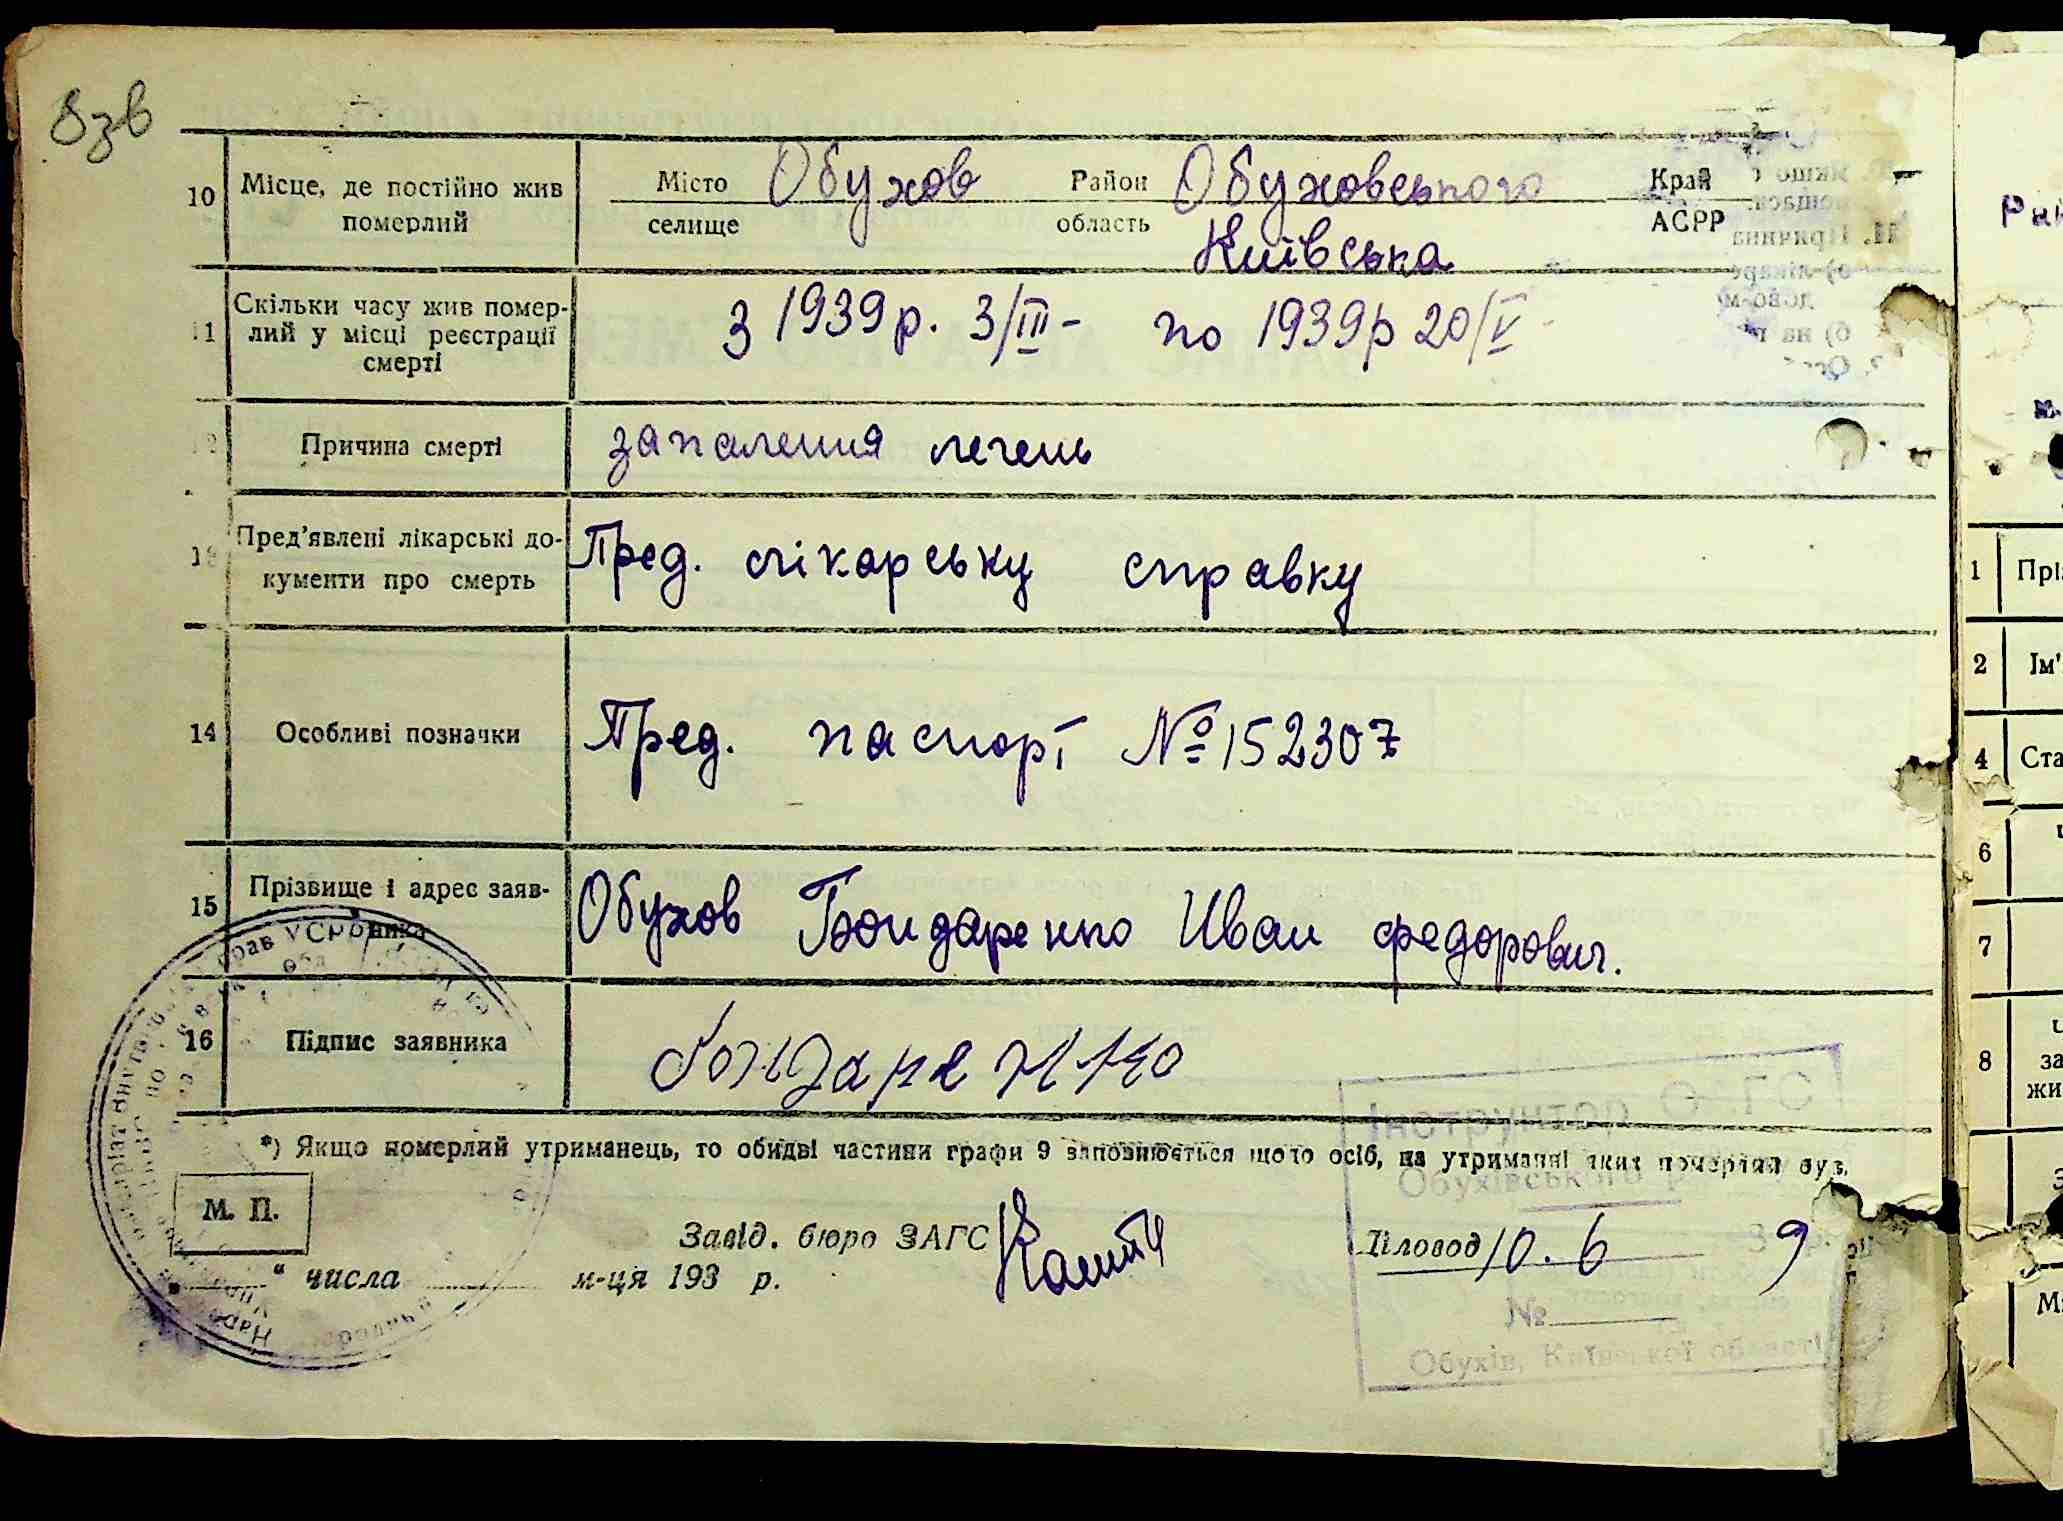 8зв
10 Місце, де постійно жив померлий Місто селище Обухов Район область Обуховського Київська Край АСРР
11 Скільки часу жив помер-
лий у місці реєстрації
смерті
з 1939 р. 3/III - по 1939р 20/V -
Причина смерті запалення легень
Пред'явлені лікарські до-
кументи про смерть
Пред. лікарську справку
14 Особливі позначки Пред. паспорт № 152307
15 Прізвище і адрес заяв-
ника
Обухов Бондаренко Иван Федорович.
16 Підпис заявника Бондаренко
*) Якщо померлий утриманець, то обидві частини графи 9 заповнюється щодо осіб, на утриманні яких померлий був.
М. П.
Завід. бюро ЗАГС
Діловод
„ “ числа м-ця 193 р.
Інструктор
Обухівського
10. 6 9
№
Обухів, Київської області
1 Прі
2 Ім'
4 Ста
6
7
8 за
жи